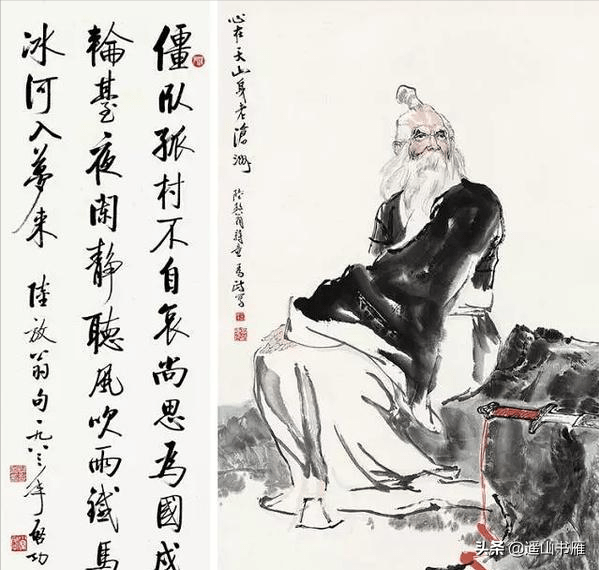 僵卧孤村不自哀尚思為國戍
輪臺夜闌靜聽風吹雨鐵馬
冰河入夢来
陸放翁句一九八三年啓功
心在天山身老滄洲
陸放翁詩意
头条 @遥山书雁